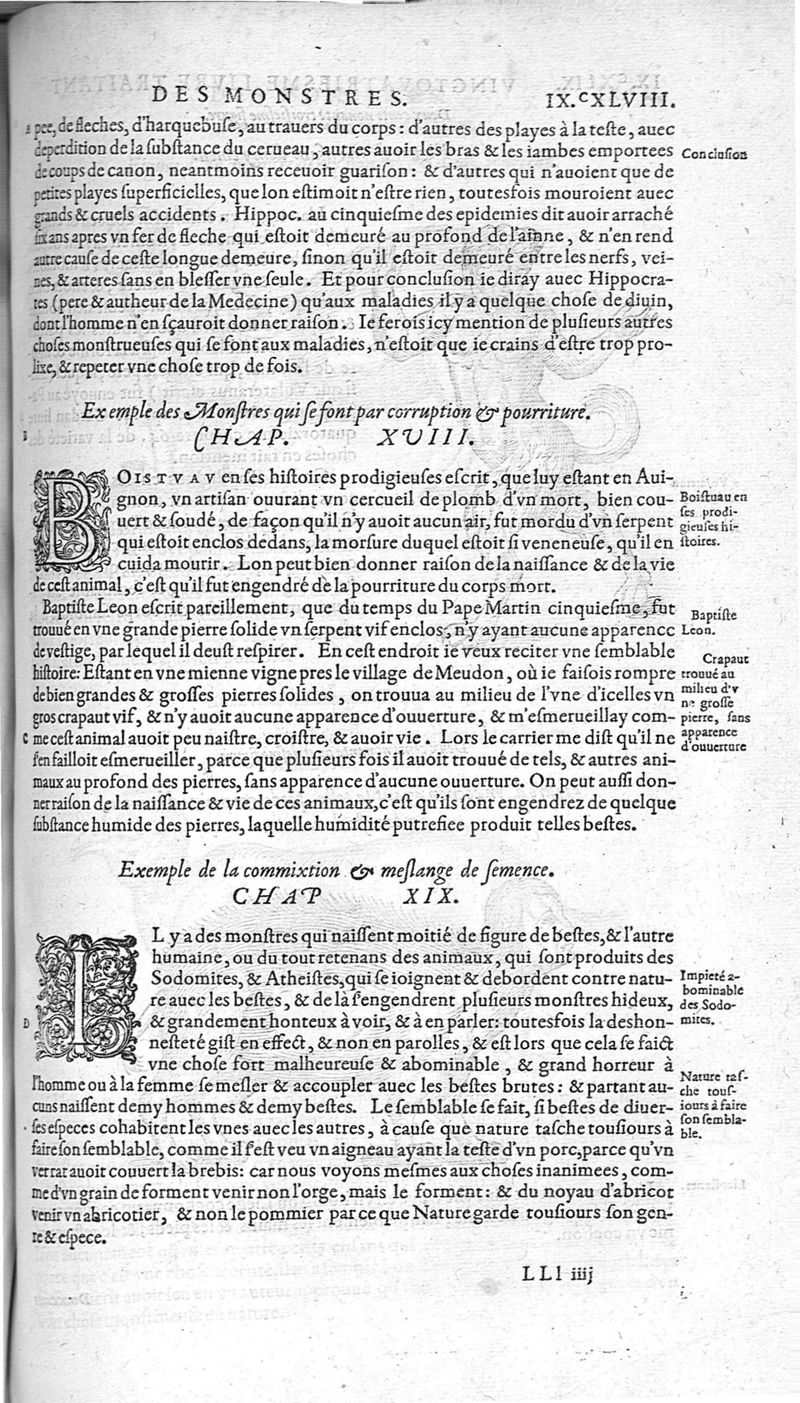 DES MONSTRES. IX.CXLVIII.
pee, de fleches, d'harquebuse, au trauers du corps : d'autres des playes à la teste, auec
deperdition de la substance du cerueau, autres auoir les bras & les iambes emportees
de coups de canon, neantmoins receuoir guarison : & d'autres qui n'auoient que de
petites playes superficielles, que lon estimoit n'estre rien, toutesfois mouroient auec
grands & cruels accidents. Hippoc. au cinquiesme des epidemies dit auoir arraché
six ans apres vn fer de fleche qui estoit demeuré au profond de l'aine, & n'en rend
autre cause de ceste longue demeure, sinon qu'il estoit demeuré entre les nerfs, vei-
nes, & arteres sans en blesser vne seule. Et pour conclusion ie diray auec Hippocra-
tes (pere & autheur de la Medecine) qu'aux maladies il y a quelque chose de diuin,
dont l'homme n'en sçauroit donner raison. Ie ferois icy mention de plusieurs autres
choses monstrueuses qui se font aux maladies, n'estoit que ie crains d'estre trop pro-
lixe, & repeter vne chose trop de fois.
Conclusion
Exemple des Monstres qui se font par corruption & pourriture.
CHAP. XVIII.
B
BOISTVAV en ses histoires prodigieuses escrit, que luy estant en Aui-
gnon, vn artisan ouurant vn cercueil de plomb d'vn mort, bien cou-
uert & soudé, de façon qu'il n'y auoit aucun air, fut mordu d'vn serpent
qui estoit enclos dedans, la morsure duquel estoit si veneneuse, qu'il en
cuida mourir. Lon peut bien donner raison de la naissance & de la vie
de cest animal, c'est qu'il fut engendré de la pourriture du corps mort.
Boistuau en
ses prodi-
gieuses hi-
stoires.
Baptiste Leon escrit pareillement, que du temps du Pape Martin cinquiesme, fut
trouué en vne grande pierre solide vn serpent vif enclos, n'y ayant aucune apparence
de vestige, par lequel il deust respirer. En cest endroit ie veux reciter vne semblable
histoire: Estant en vne mienne vigne pres le village de Meudon, où ie faisois rompre
de bien grandes & grosses pierres solides, on trouua au milieu de l'vne d'icelles vn
gros crapaut vif, & n'y auoit aucune apparence d'ouuerture, & m'esmerueillay com-
C me cest animal auoit peu naistre, croistre, & auoir vie. Lors le carrier me dist qu'il ne
s'en failloit esmerueiller, parce que plusieurs fois il auoit trouué de tels, & autres ani-
maux au profond des pierres, sans apparence d'aucune ouuerture. On peut aussi don-
ner raison de la naissance & vie de ces animaux, c'est qu'ils sont engendrez de quelque
substance humide des pierres, laquelle humidité putrefiee produit telles bestes.
Baptiste
Leon.
Crapaut
trouué au
milieu d'v
ne grosse
pierre, sans
apparence
d'ouuerture
Exemple de la commixtion & meslange de semence.
CHAP XIX.
IL y a des monstres qui naissent moitié de figure de bestes, & l'autre
humaine, ou du tout retenans des animaux, qui sont produits des
Sodomites, & Atheistes, qui se ioignent & debordent contre natu-
re auec les bestes, & de là s'engendrent plusieurs monstres hideux,
D & grandement honteux à voir, & à en parler: toutesfois la deshon-
nesteté gist en effect, & non en parolles, & est lors que cela se faict
vne chose fort malheureuse & abominable, & grand horreur à
l'homme ou à la femme se mesler & accoupler auec les bestes brutes: & partant au-
cuns naissent demy hommes & demy bestes. Le semblable se fait, si bestes de diuer-
ses especes cohabitent les vnes auec les autres, à cause que nature tasche tousiours à
faire son semblable, comme il s'est veu vn aigneau ayant la teste d'vn porc, parce qu'vn
verrat auoit couuert la brebis: car nous voyons mesmes aux choses inanimees, com-
me d'vn grain de forment venir non l'orge, mais le forment: & du noyau d'abricot
venir vn abricotier, & non le pommier parce que Nature garde tousiours son gen-
re & espece.
Impieté a-
bominable
des Sodo-
mites.
Nature tas-
che tous-
iours à faire
son sembla-
ble.
LLl iiij